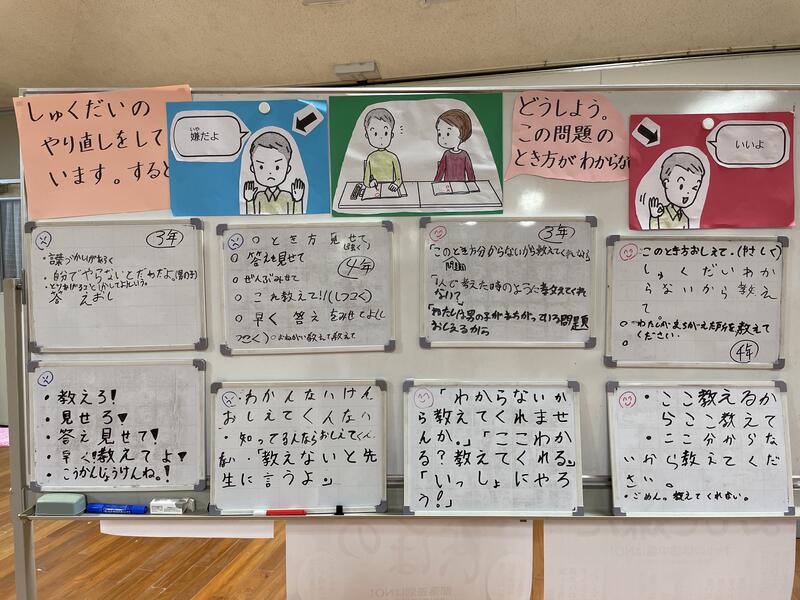 しゅくだいの
やり直しをして
います。すると
嫌だよ
いや
どうしよう。
この問題の
とき方がわからな
いいよ
3年
・言葉づかいがあらく
・自分でやらないとだめだよ(男の子)
答えおし
○とき方見せて
○答え見せて
4年
○ぜんぶみせて
○これ教えて!!(しつこく)
○早く答えをみせてよ(し
つこく)○おねがい教えて教えて
3年
「このとき方分からないから教えてくれない
問題
「1人で考えた時のように教えてくれ
ない?
「わたしは男の子がまちがっている問題
おしえるから
○このとき方おしえて。(やさしく)
しゅくだいわか
らないから教え
て。
○わたしがまちがえた所を教えて
ください。
4年
・教えろ!
・見せろ▼
・答え見せて!
・早く!教えてよ▼
・こうかんじょうけんね。!
・わかんないけん
おしえてくんない
・知ってるんならおしえてくん
ない・「教えないと先
生に言うよ。」
「わからないか
ら教えてくれませ
んか。」「ここわか
る?教えてくれる。」
「いっしょにやろ
う!」
・ここ教えるか
らここ教えて
・ここ分からな
いから教えてくだ
さい。
・ごめん。教えてくれない。